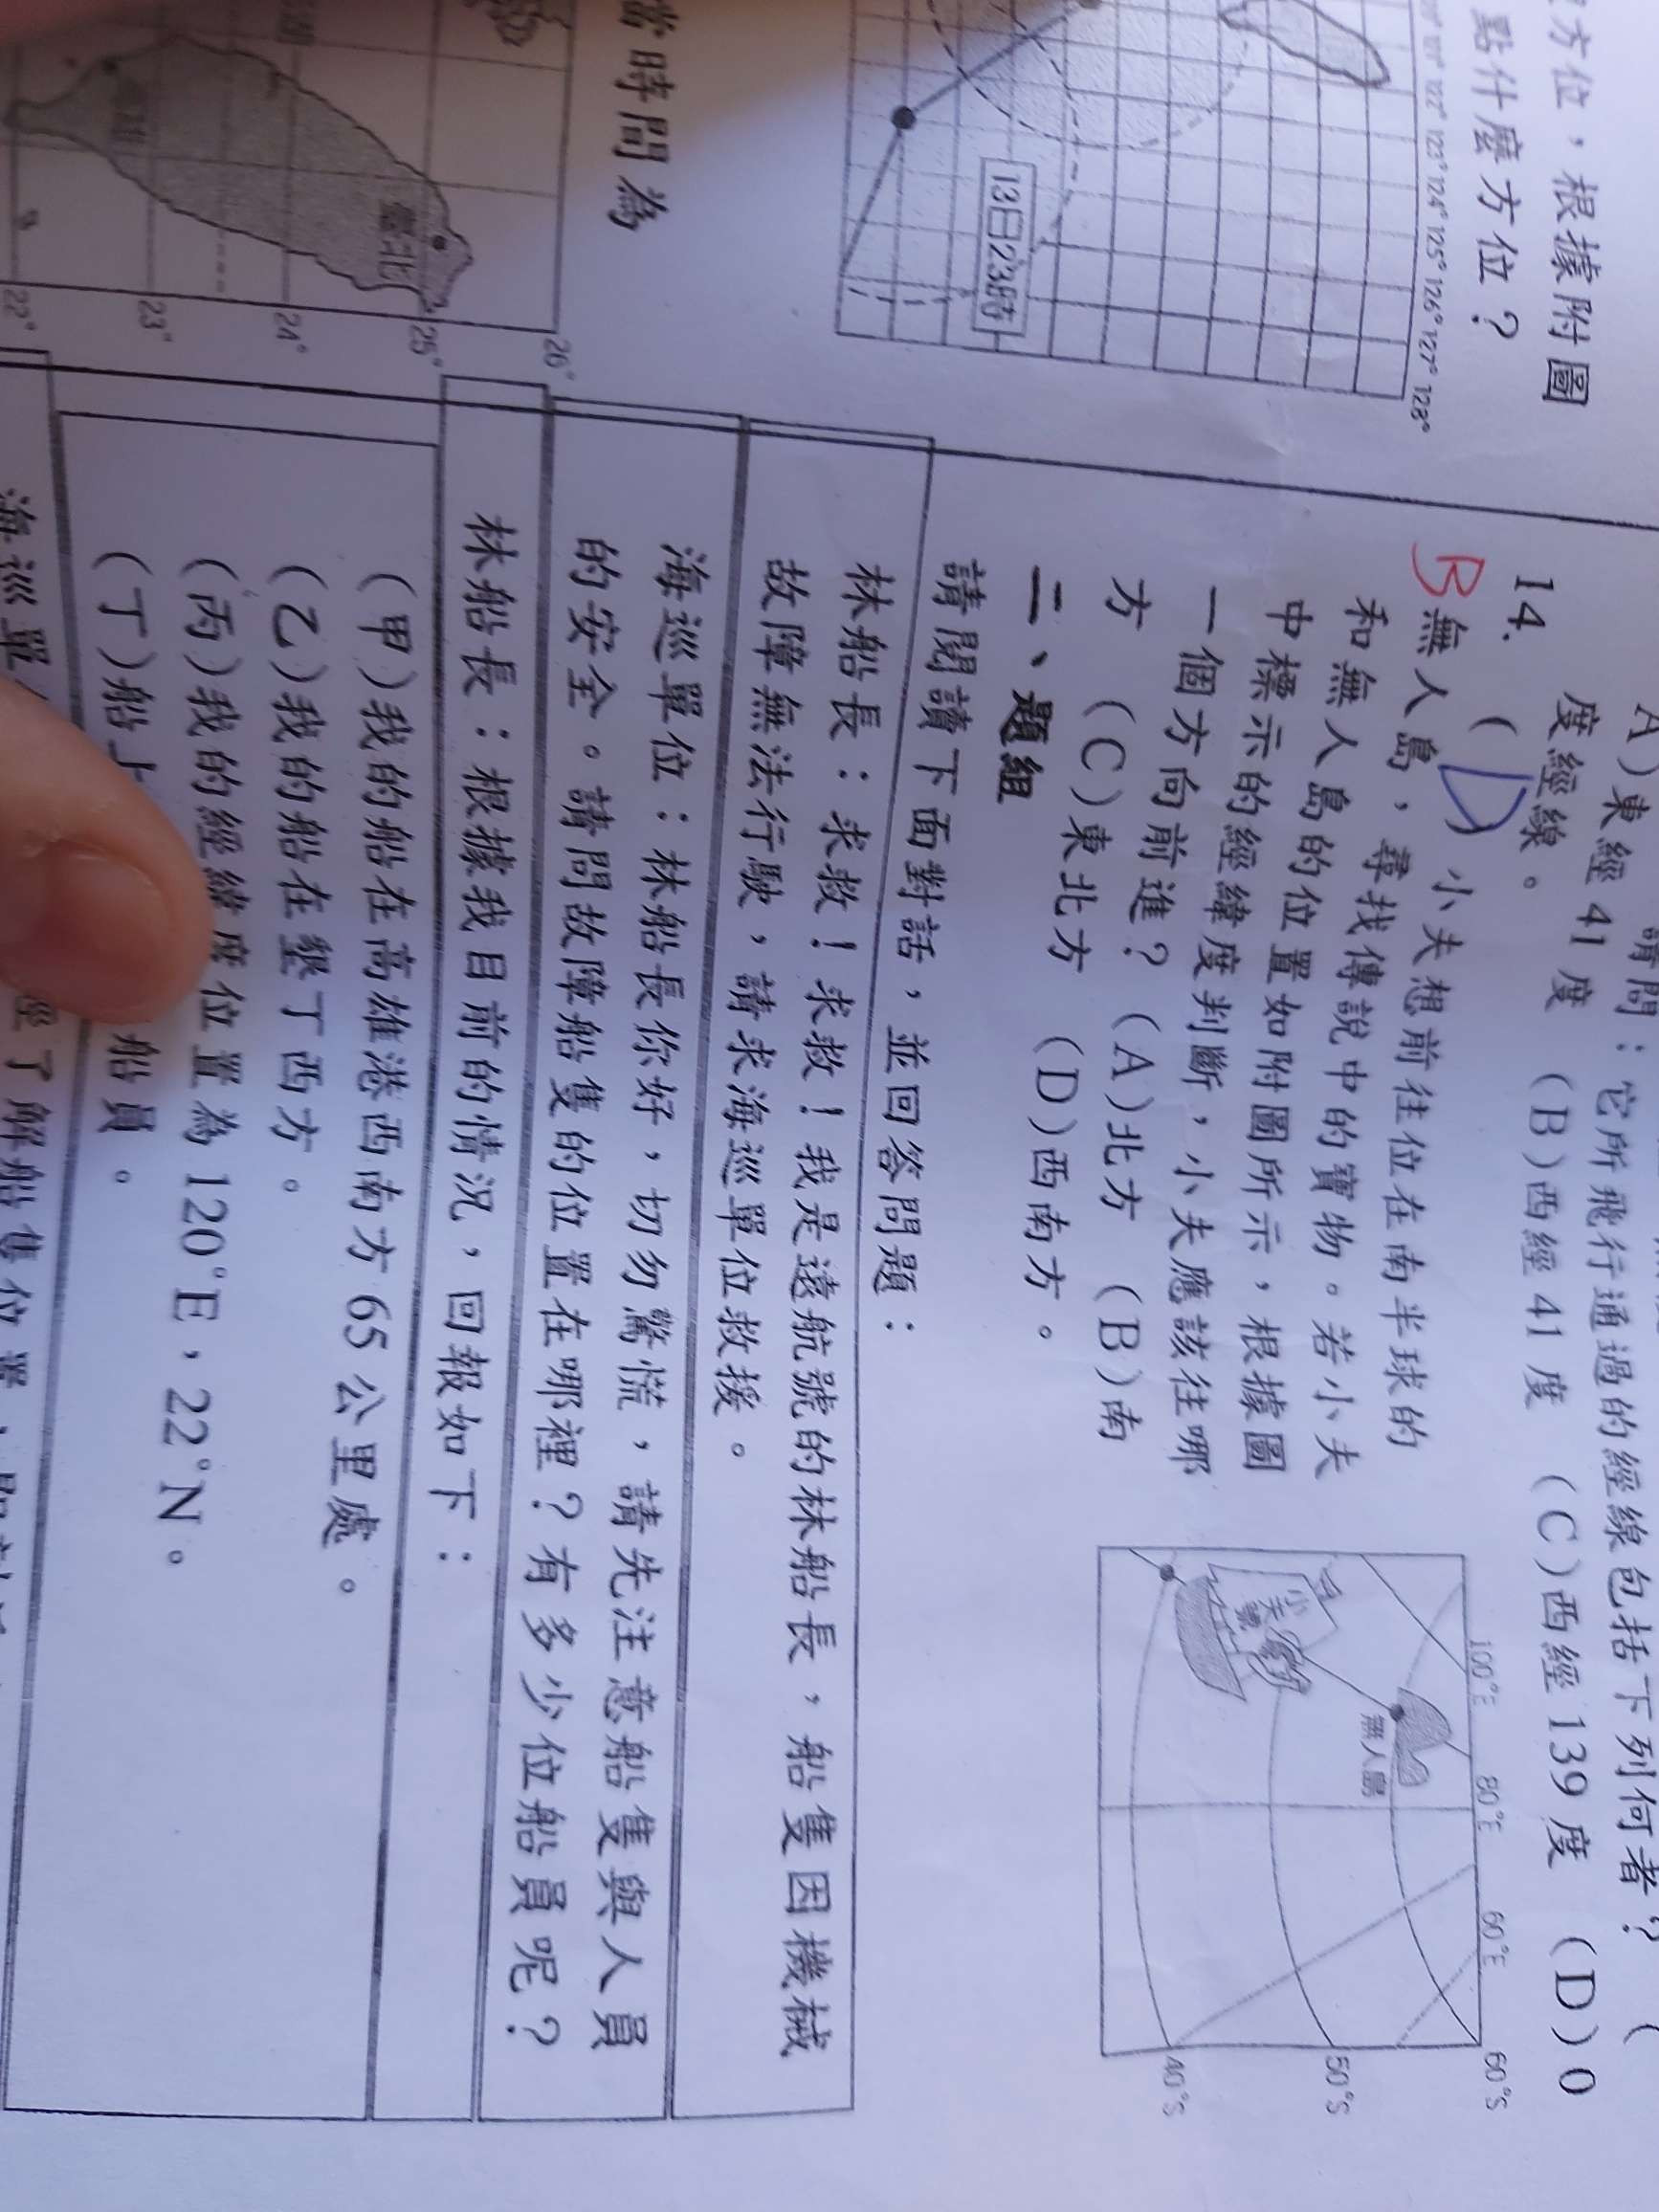 方位，根據附圖
點什麼方位？
121° 122° 123° 124° 125° 126° 127° 128°
13日23時
當時間為
臺北
26°
25°
24°
23°
22°
A)東經 41 度 (B)西經 41 度 (C)西經 139 度 (D)0
度經線。
請問：它所飛行通過的經線包括下列何者？ (
14. ( D ) 小夫想前往位在南半球的
B
無人島，尋找傳說中的寶物。若小夫
和無人島的位置如附圖所示，根據圖
中標示的經緯度判斷，小夫應該往哪
一個方向前進？ (A)北方 (B)南
方 (C)東北方 (D)西南方。
100°E 80°E 60°E
60°S
50°S
40°S
小夫號
無人島
二、題組
請閱讀下面對話，並回答問題：
林船長：求救！求救！我是遠航號的林船長，船隻因機械
故障無法行駛，請求海巡單位救援。
海巡單位：林船長你好，切勿驚慌，請先注意船隻與人員
的安全。請問故障船隻的位置在哪裡？有多少位船員呢？
林船長：根據我目前的情況，回報如下：
(甲)我的船在高雄港西南方 65 公里處。
(乙)我的船在墾丁西方。
(丙)我的經緯度位置為 120°E，22°N。
(丁)船上 船員。
海巡單 了解船隻位置，